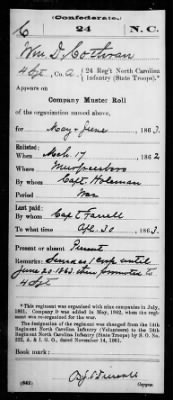 (Confederate.)
C 24 N. C.
Wm D. Cothran
4 Sgt, Co. A, 24 Reg't North Carolina
Infantry (State Troops).*
Appears on
Company Muster Roll
of the organization named above,
for May & June, 1863.
Enlisted:
When Mch. 17, 1862
Where Murfreesboro
By whom Capt Holeman
Period War
Last paid:
By whom Capt Farrell
To what time Apr. 30, 1863.
Present or absent Present
Remarks: Served as 1 Corp until
June 20 1863 then promoted to
4 Sgt
*This regiment was organized with nine companies in July,
1861. Company D was added to it May, 1862, when the regi-
ment was re-organized for the war.
The designation of the regiment was changed from the 14th
Regiment North Carolina Infantry (Volunteers) to the 24th
Regiment North Carolina Infantry (State Troops) by S. O. No.
222, A. & I. G. O., dated November 14, 1861.
Book mark:
(642)
Copyist.